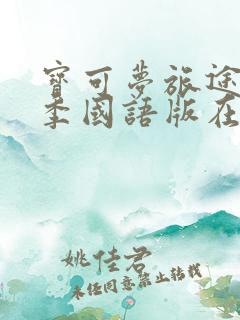 寶可夢旅途
季國語版在
姚佳君
未经同意禁止转载